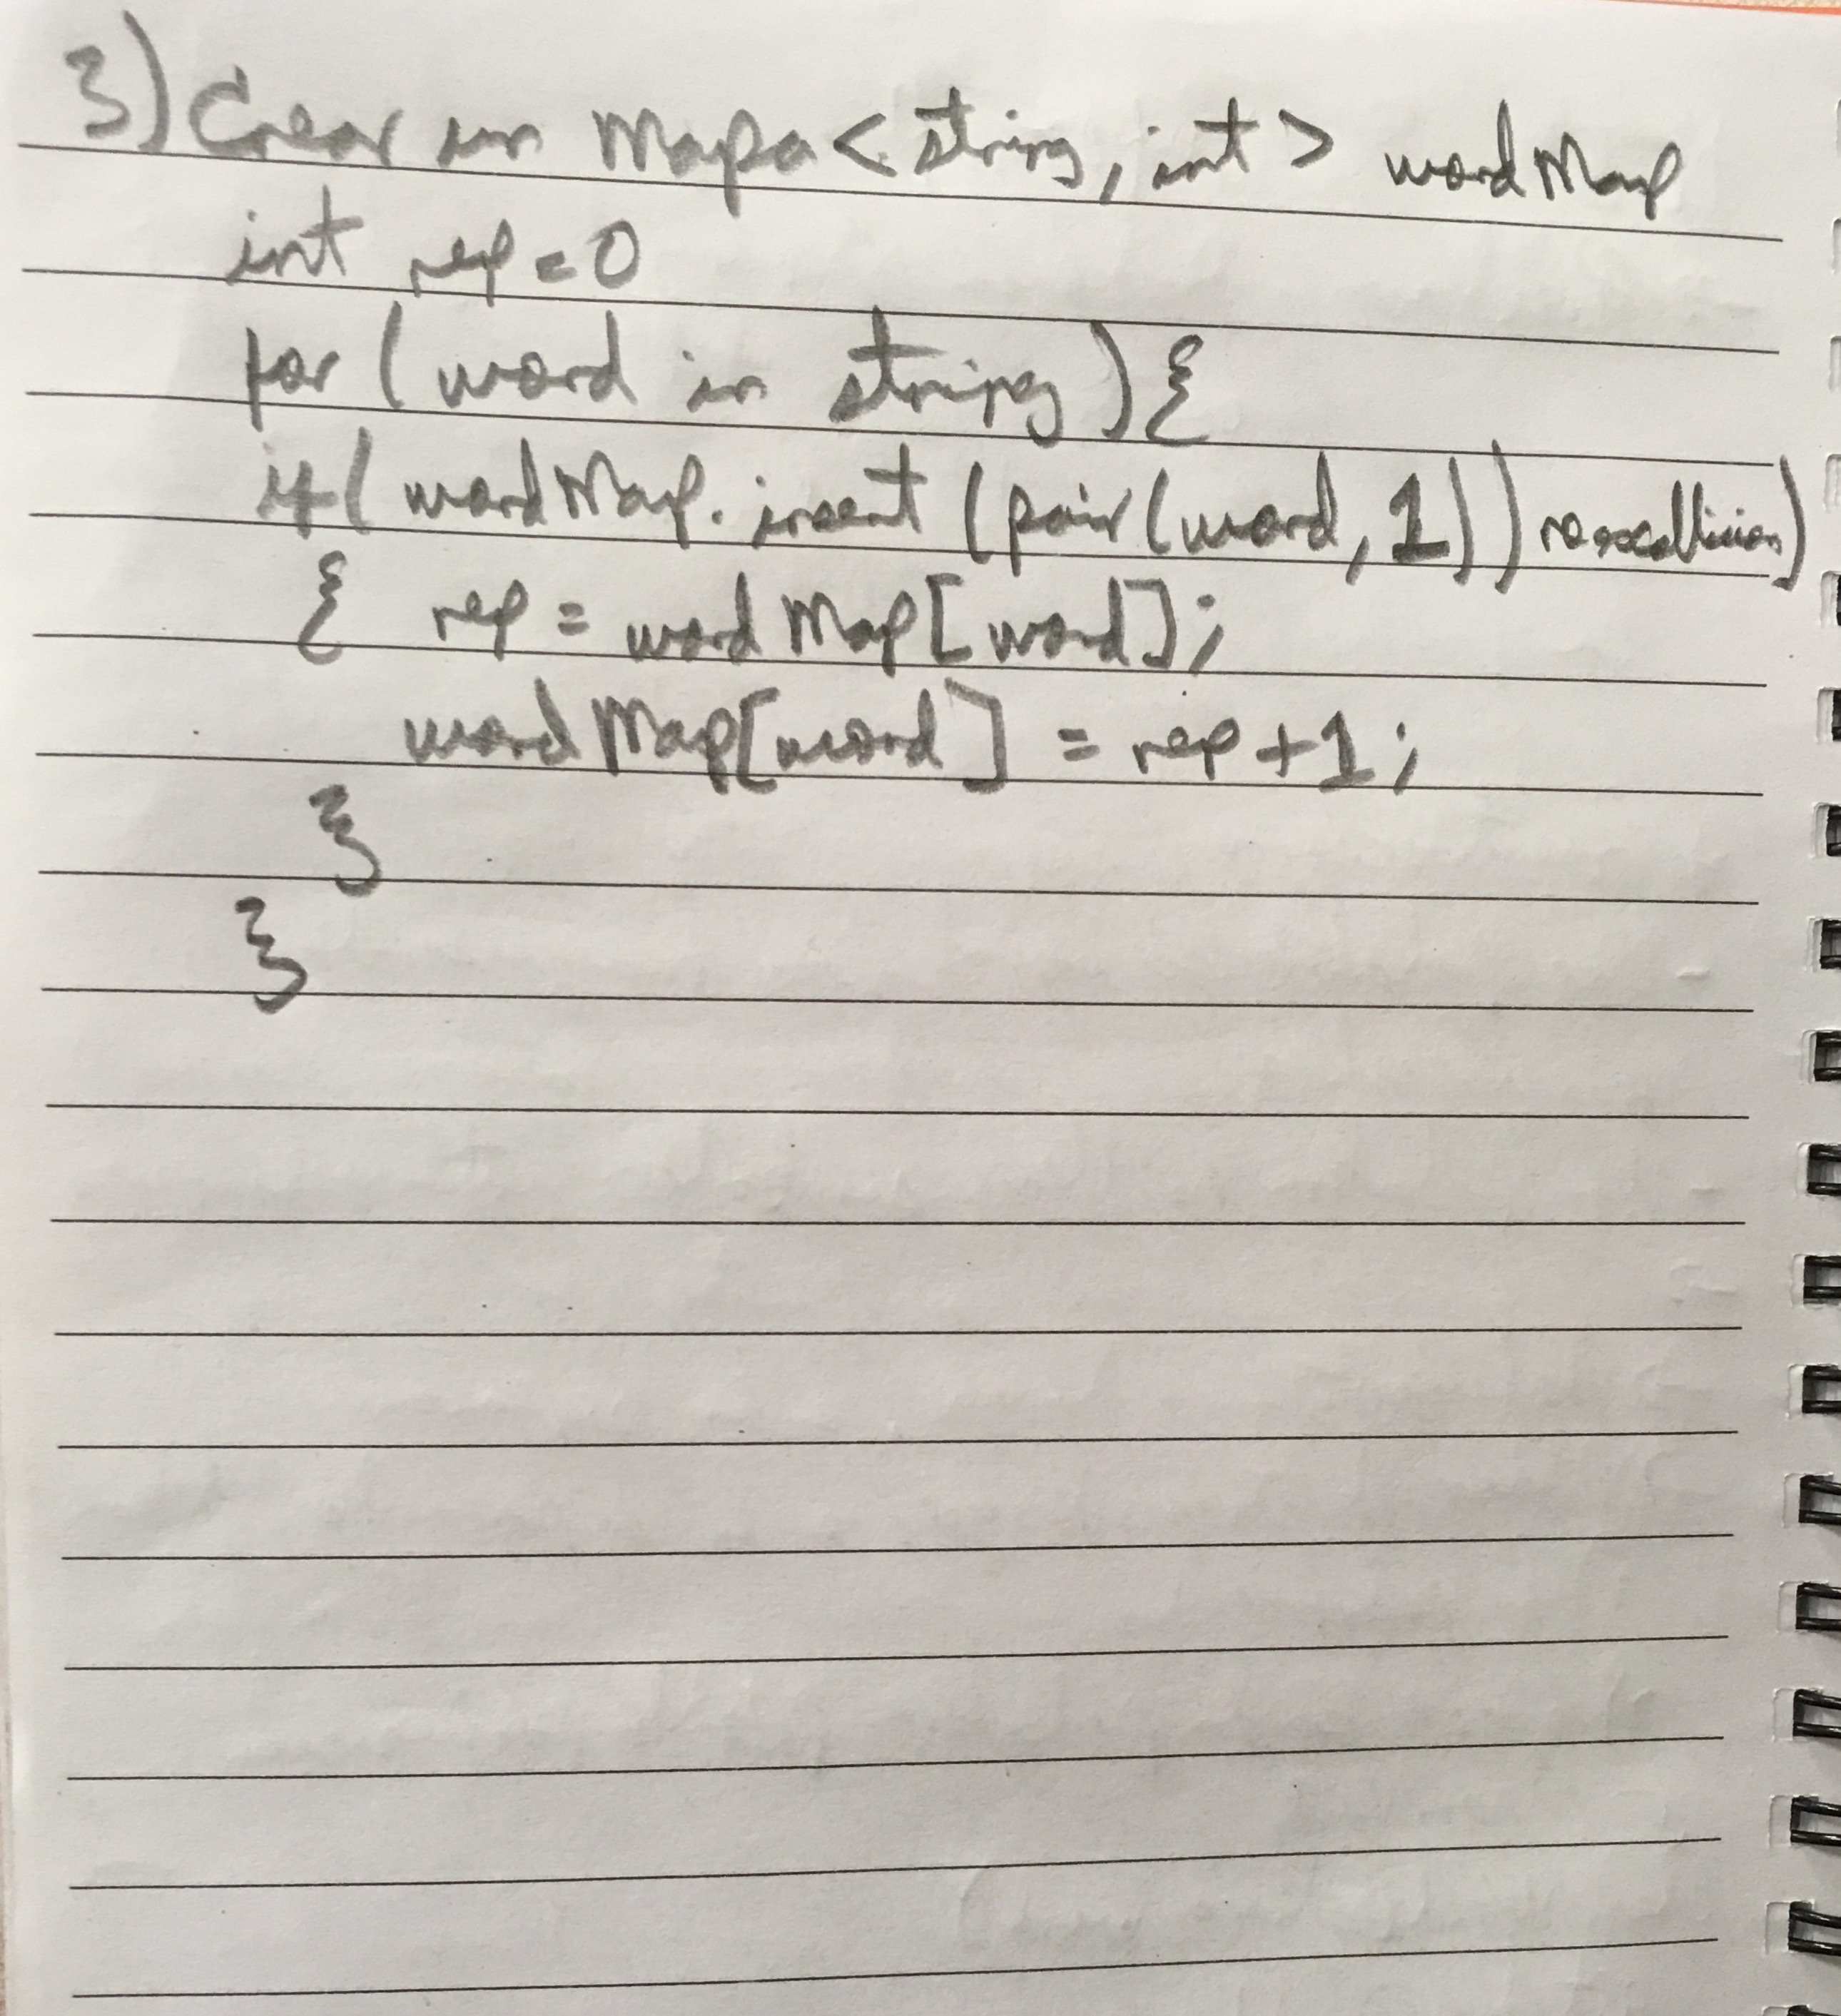 3) Crear un Mapa<string, int> wordMap
int rep = 0
for (word in string) {
if( wordMap.insert (pair(word, 1)) )
{ rep = wordMap[word];
wordMap[word] = rep+1;
}
}